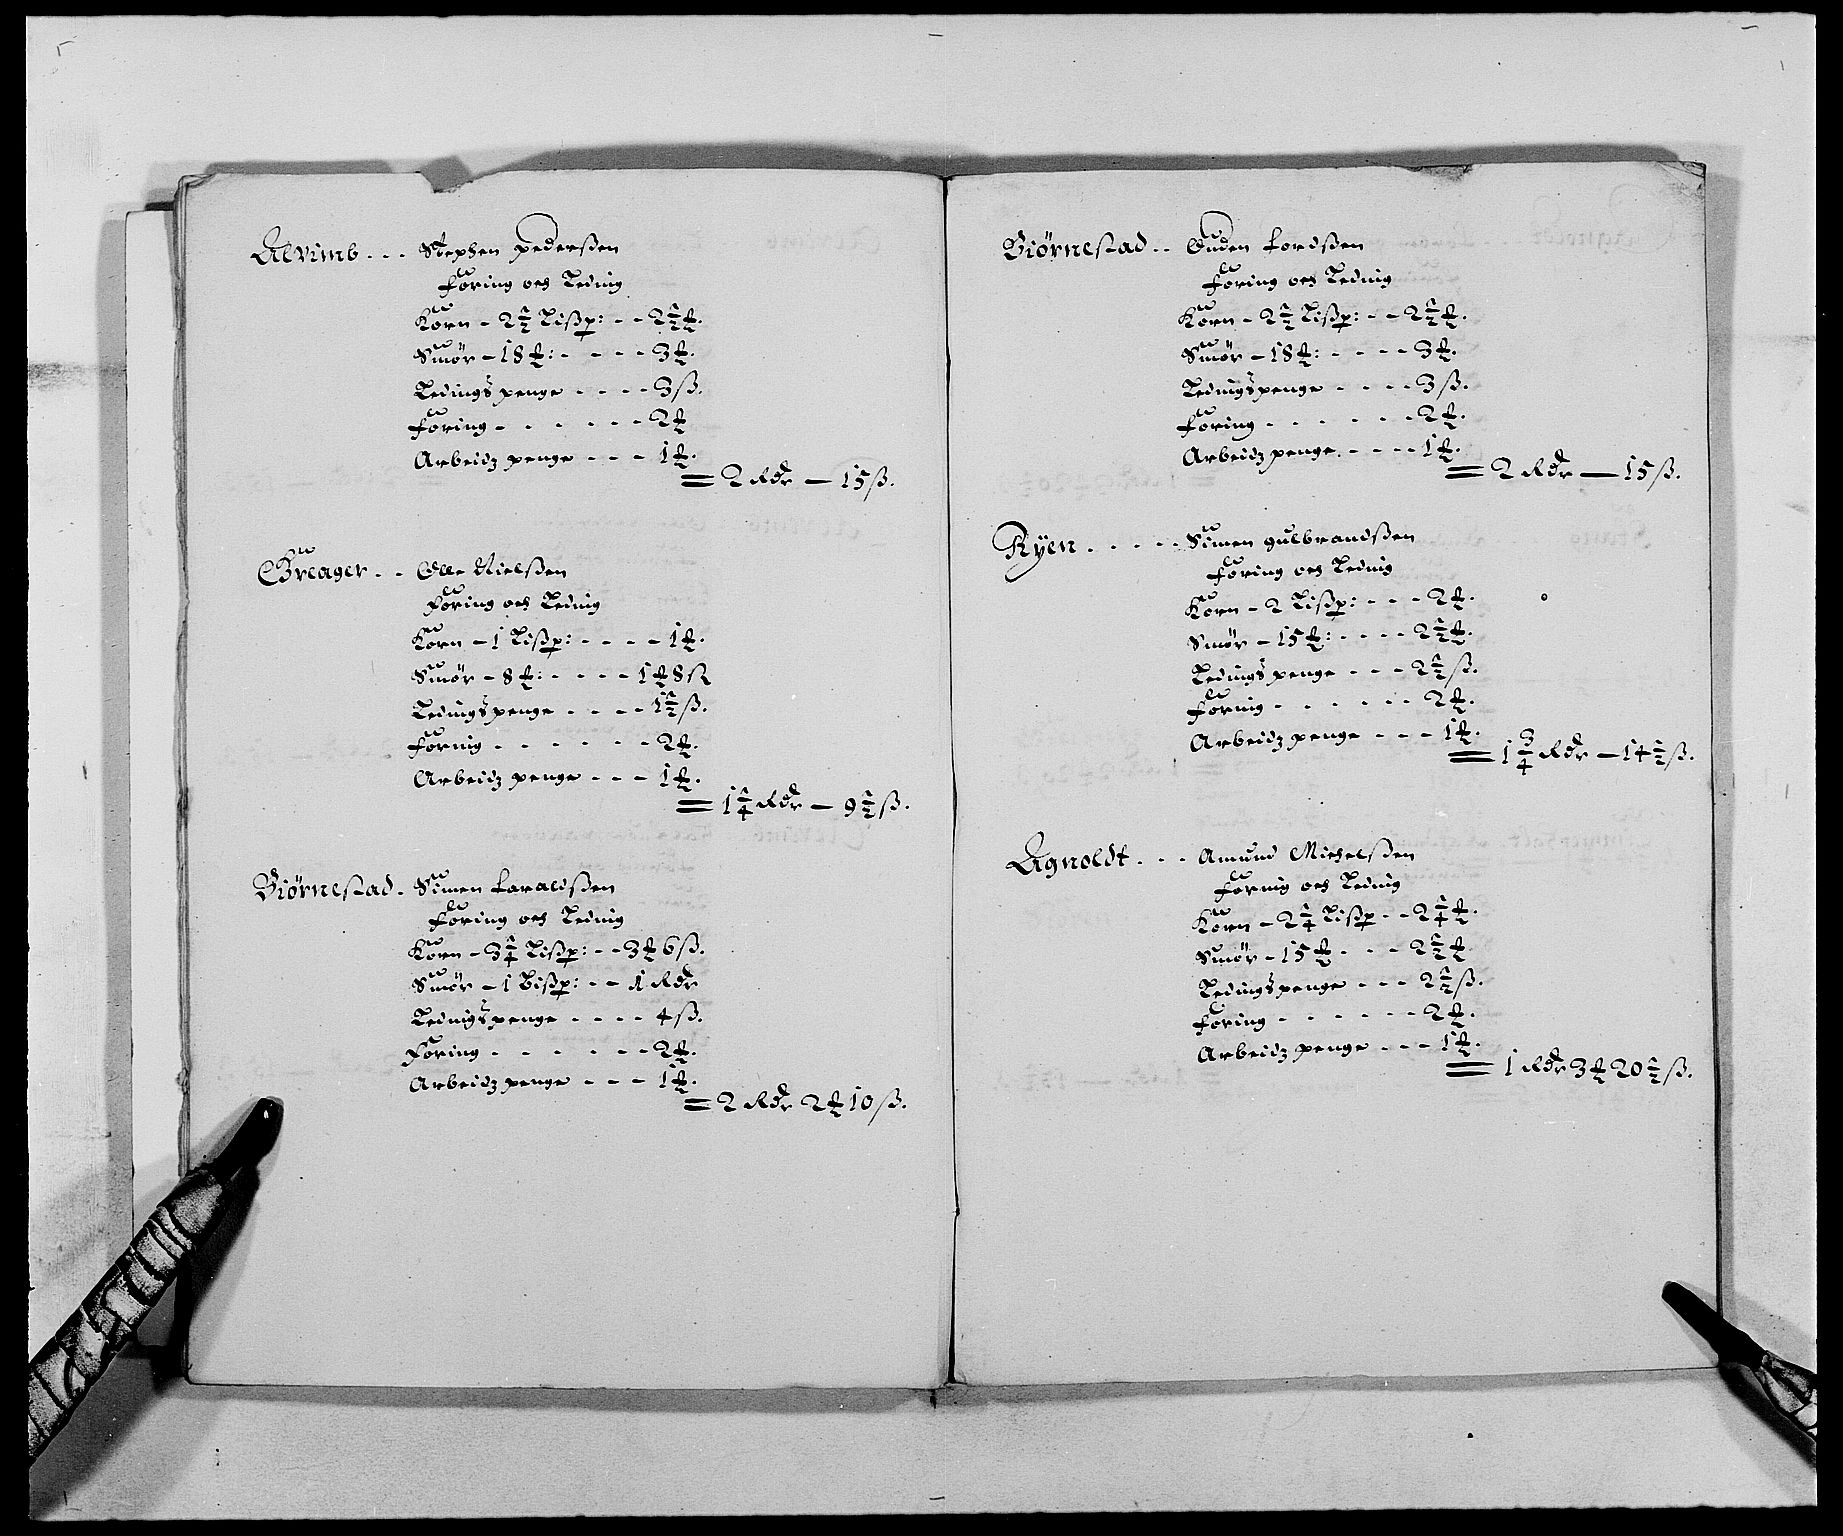 Alvimb - - - Stephen Pederßen
Foring och Leding
Korn - 2½ Lißp: - - 2½ ℔.
Smør - 18 ℔: - - - - 3 ℔.
Ledingspenge - - - - 3 ß.
Foring - - - - - - 2 ℔
Arbeidz penge - - - 1 ℔.
= 2 Rdr — 15 ß.
Greager - - Olle Nielßen
Foring och Leding
Korn - 1 Lißp: - - - - 1 ℔.
Smør - 8 ℔: - - - - 1 ℔ 8 ß
Ledingspenge - - - - 1½ ß.
Foring - - - - - - 2 ℔.
Arbeidz penge - - - 1 ℔.
= 1¼ Rdr — 9½ ß.
Biørnestad - Simen Laraldßen
Foring och Leding
Korn - 3¼ Lißp: - - 3 ℔ 6 ß.
Smør - 1 Lißp: - - 1 Rdr
Ledingspenge - - - - 4 ß.
Foring - - - - - - 2 ℔.
Arbeidz penge - - - 1 ℔.
= 2 Rdr 2 ℔ 10 ß.
Biørnestad - - Guden Lordßen
Foring och Leding
Korn - 2½ Lißp: - - 2½ ℔.
Smør - 18 ℔: - - - - 3 ℔.
Ledingspenge - - - - 3 ß.
Foring - - - - - - 2 ℔.
Arbeidz penge - - - - 1 ℔.
= 2 Rdr — 15 ß.
Ryen - - - - - Simen gulbrandßen
Foring och Leding
Korn - 2 Lißp: - - - 2 ℔.
Smør - 15 ℔: - - - - 2½ ℔.
Ledings penge - - - 2½ ß.
Foring - - - - - - 2 ℔.
Arbeidz penge - - - 1 ℔.
= 1¾ Rdr — 14½ ß.
Agnoldt - - - Amund Michelßen
Foring och Leding
Korn - 2¼ Lißp - - 2¼ ℔.
Smør - 15 ℔ - - - 2½ ℔
Ledingspenge - - - 2½ ß.
Foring - - - - - - 2 ℔.
Arbeidz penge - - - 1 ℔.
= 1 Rdr 3 ℔ 20½ ß.